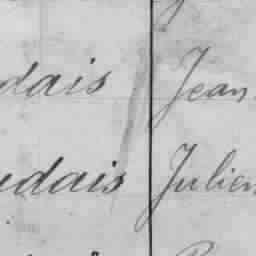 dais Jean
udais Julien